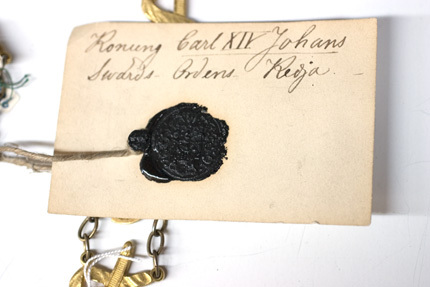 Konung Carl XIV Johans
Swärds Ordens Kedja